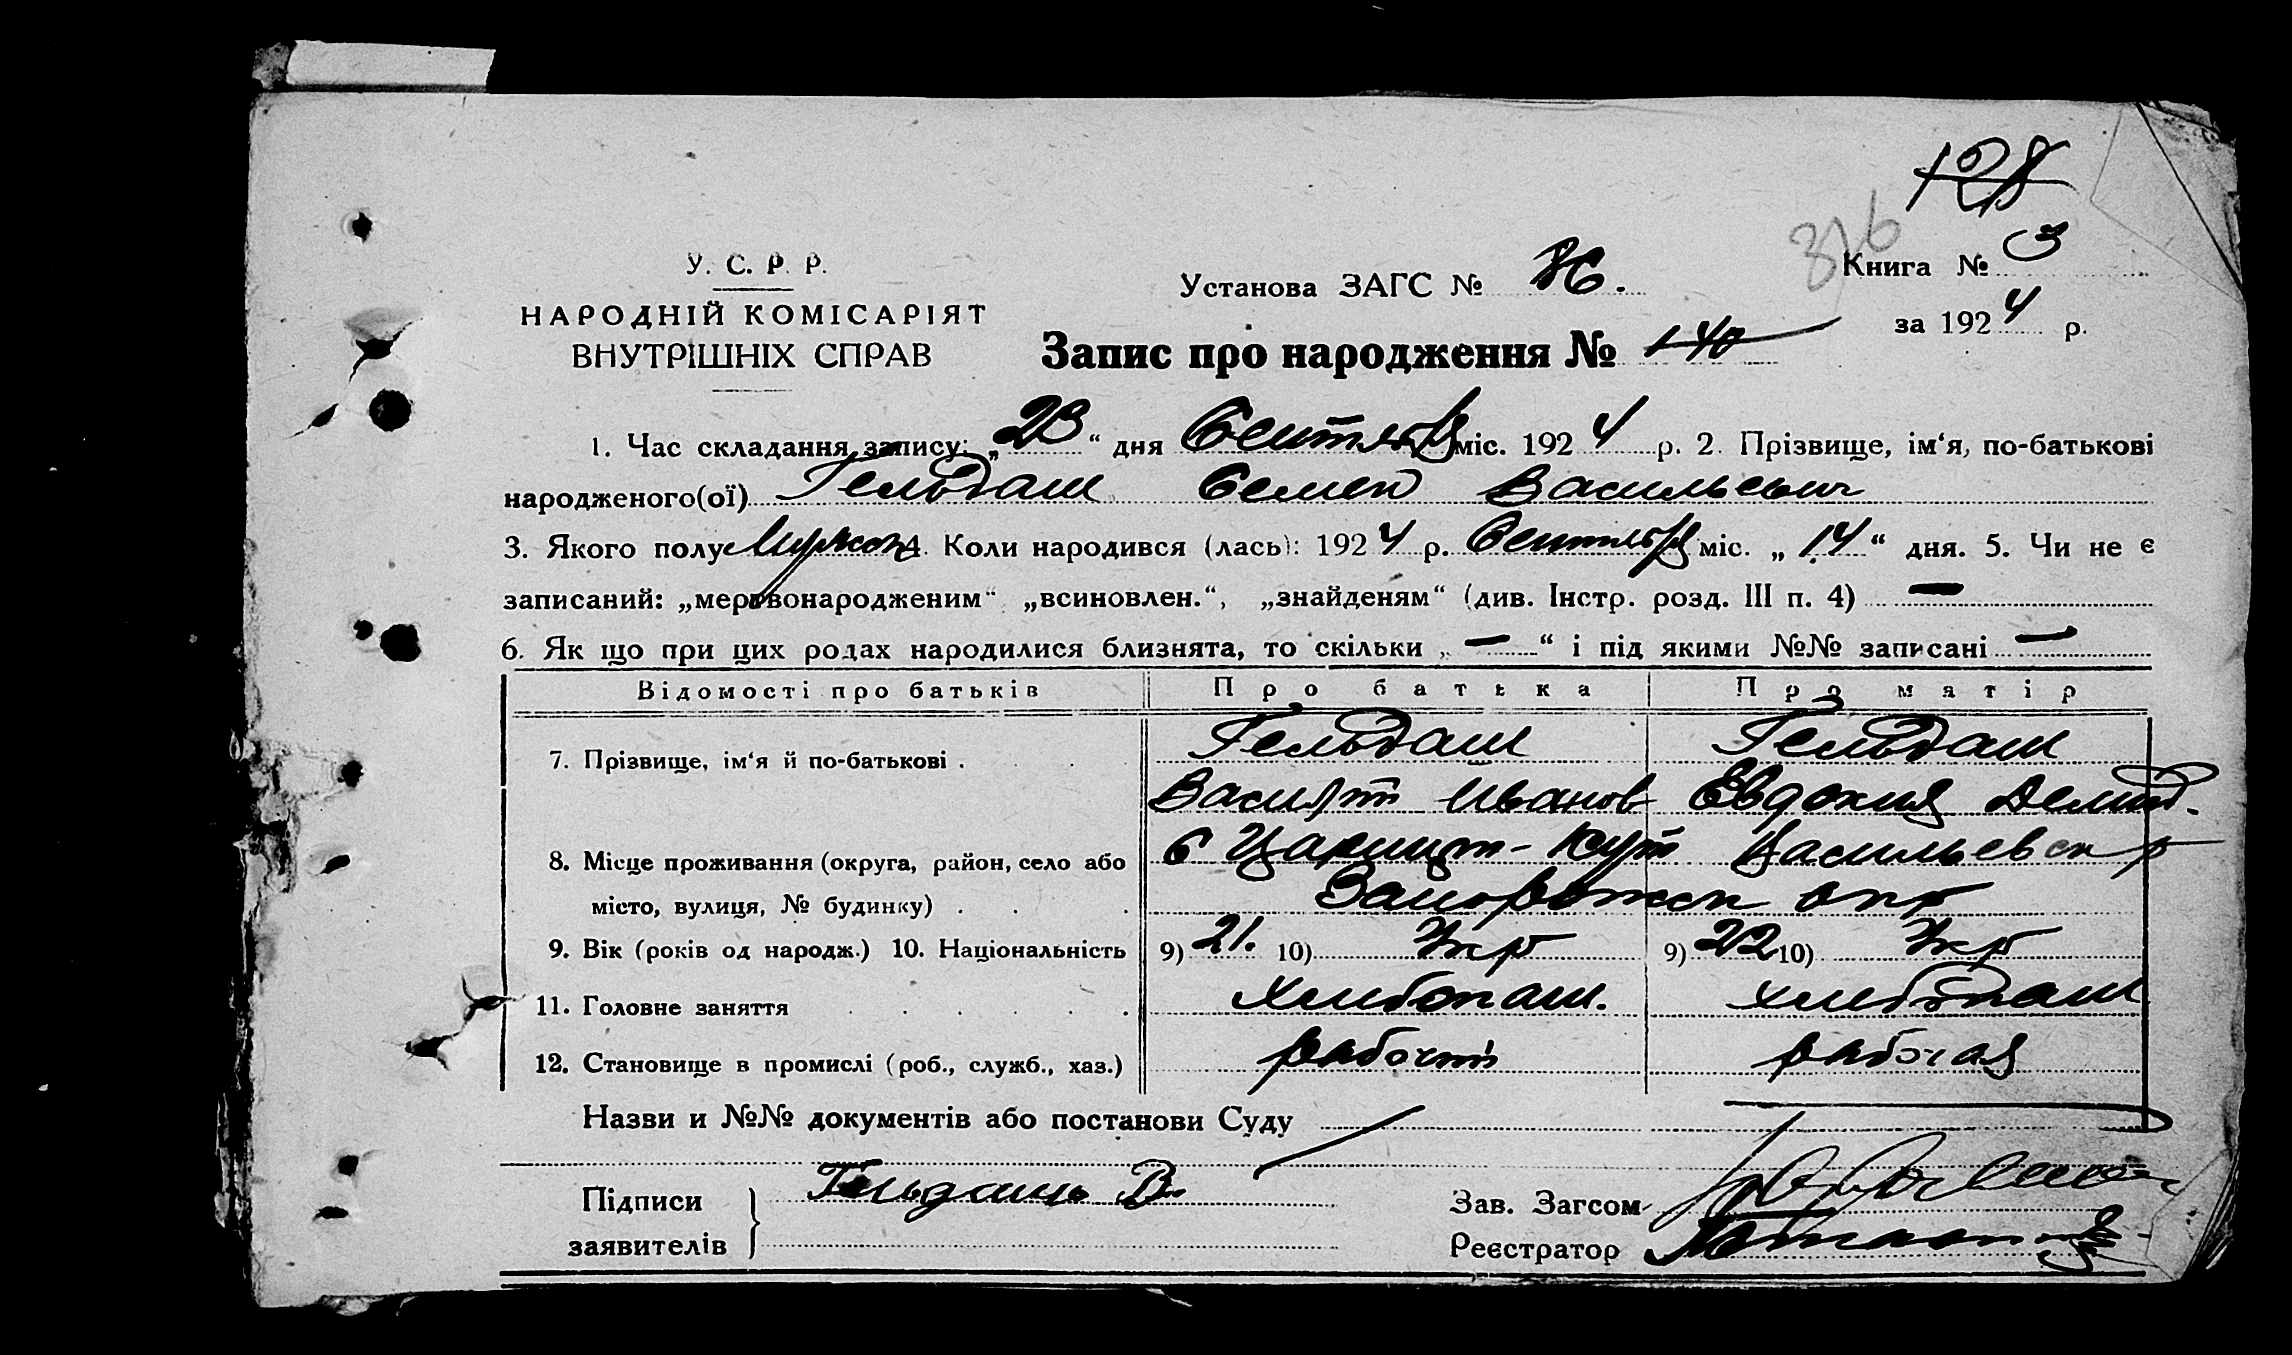 128
316
У. С. Р. Р.
Установа ЗАГС №
Книга № 3
НАРОДНІЙ КОМІСАРІЯТ
за 1924 р.
ВНУТРІШНІХ СПРАВ
Запис про народження № 140
1. Час складання запису: „23“ дня Сентябр міс. 1924 р. 2. Прізвище, ім‘я, по-батькові
народженого(ої) Гельдаш Семен Васильевич
3. Якого полу Мужск 4. Коли народився (лась): 1924 р. Сентябр міс. „14“ дня. 5. Чи не є
записаний: „мертвонародженим“, „всиновлен.“, „знайденям“ (див. Інстр. розд. III п. 4) —
6. Як що при цих родах народилися близнята, то скільки „—“ і під якими №№ записані —
Відомості про батьків Про батька Про матір
7. Прізвище, ім‘я й по-батькові . Гельдаш Гельдаш
Василий Иванов Евдокия Демид.
8. Місце проживання (округа, район, село або с Царицын-Кут Васильевск р
місто, вулиця, № будинку) . Запорожск окр
9. Вік (років од народж.) 10. Національність 9) 21. 10) Укр 9) 22 10) Укр
11. Головне заняття хлибопаш. хлибопаш
12. Становище в промислі (роб., служб., хаз.) рабочий рабочая
Назви и №№ документів або постанови Суду
Підписи Гельдаш В. Зав. Загсом
заявителів Реєстратор